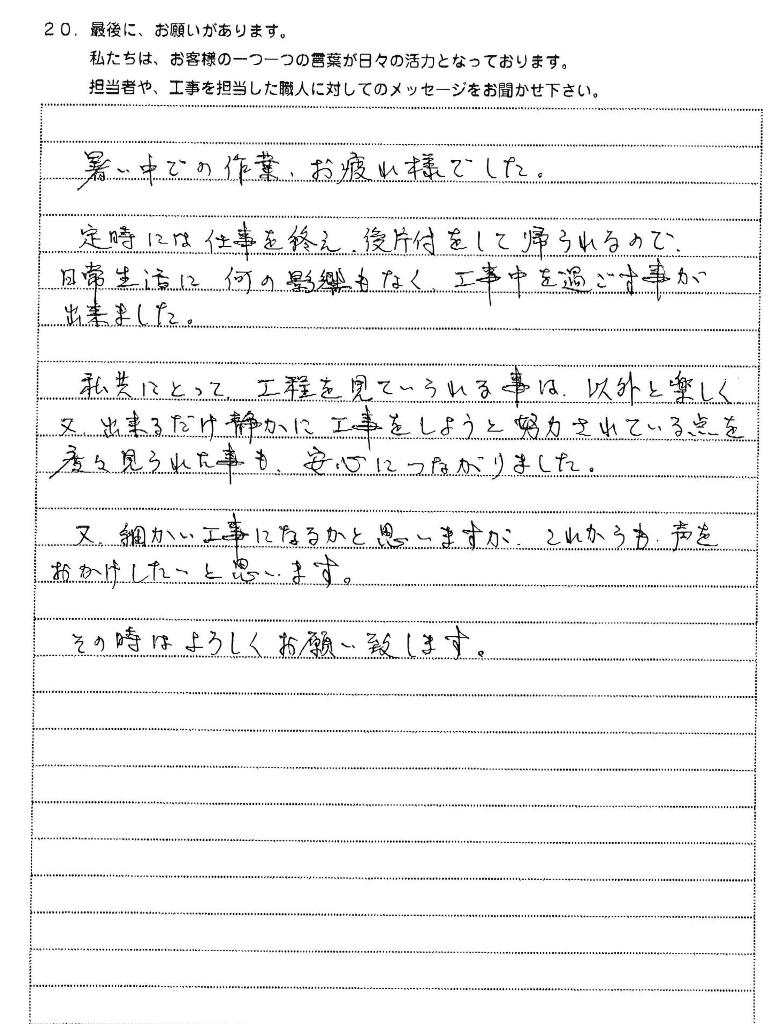 20. 最後に、お願いがあります。
私たちは、お客様の一つ一つの言葉が日々の活力となっております。
担当者や、工事を担当した職人に対してのメッセージをお聞かせ下さい。
暑い中での作業、お疲れ様でした。
定時には仕事を終え、後片付をして帰られるので、
日常生活に何の影響もなく、工事中を過ごす事が
出来ました。
私共にとって、工程を見ていられる事は、以外と楽しく
又、出来るだけ静かに工事をしようと努力されている点を
度々見られた事も、安心につながりました。
又、細かい工事になるかと思いますが、これからも、声を
おかけしたいと思います。
その時はよろしくお願い致します。